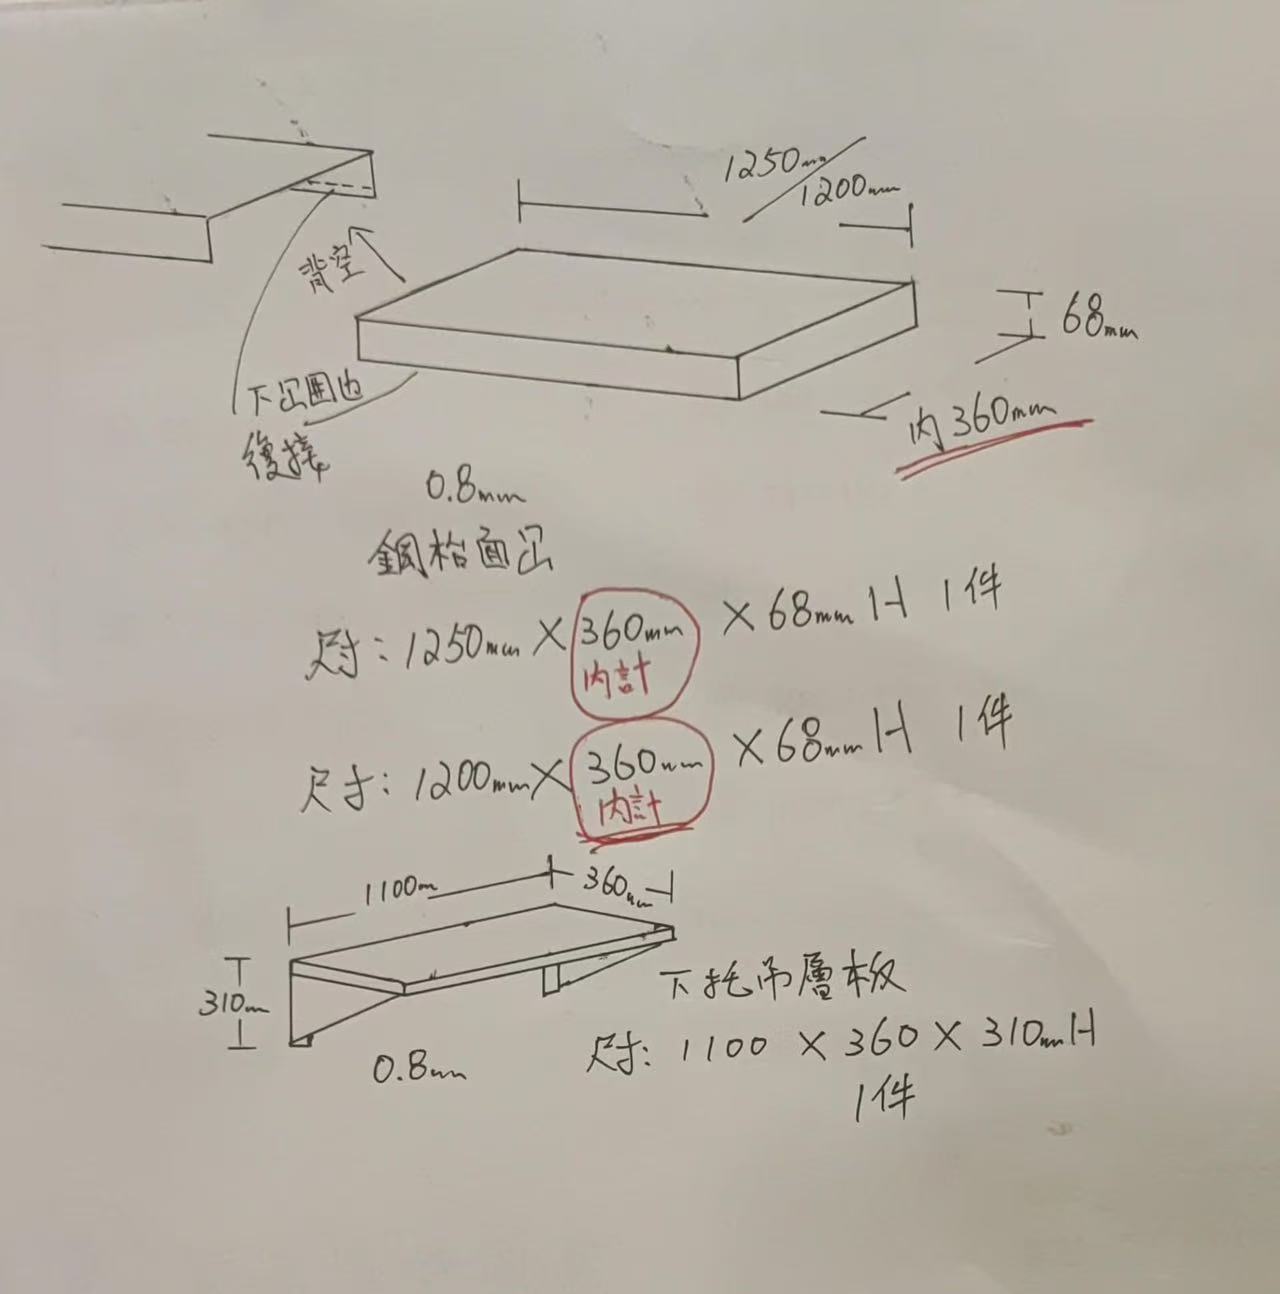 1250mm
1200mm
背空
68mm
內360mm
下
後接
0.8mm
鋼枱面
尺寸：1250mm × 360mm × 68mm H 1件
內計
尺寸：1200mm × 360mm × 68mm H 1件
內計
1100m
360mm
310mm
下托吊層板
0.8mm
尺寸：1100 × 360 × 310mm H
1件